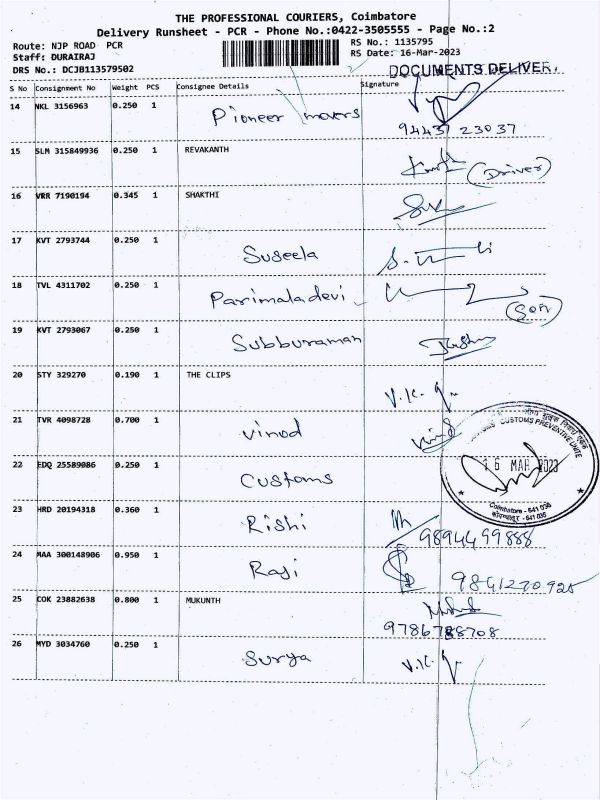 THE PROFESSIONAL COURIERS, Coimbatore
Delivery Runsheet - PCR - Phone No.:0422-3505555 - Page No.:2
Route: NJP ROAD PCR RS No.: 1135795
Staff: DURAIRAJ RS Date: 16-Mar-2023
DRS No.: DCJB113579502
DOCUMENTS DELIVER.
S No Consignment No Weight PCS Consignee Details Signature
14 NKL 3156963 0.250 1 Pioneer movers
94431 23037
15 SLM 315849936 0.250 1 REVAKANTH
(Driver)
16 VRR 7190194 0.345 1 SHAKTHI
17 KVT 2793744 0.250 1 Suseela
18 TVL 4311702 0.250 1 Parimaladevi
(Son)
19 KVT 2793067 0.250 1 Subburaman
20 STY 329270 0.190 1 THE CLIPS
21 TVR 4098728 0.700 1 Vinod
CUSTOMS PREVENTIVE
22 EDQ 25589086 0.250 1 Customs
16 MAR 2023
Coimbatore - 641 035
23 HRD 20194318 0.360 1 Rishi
9894499888
24 MAA 300148906 0.950 1 Raji
9841270925
25 COK 23882638 0.800 1 MUKUNTH
26 MYD 3034760 0.250 1 Surya